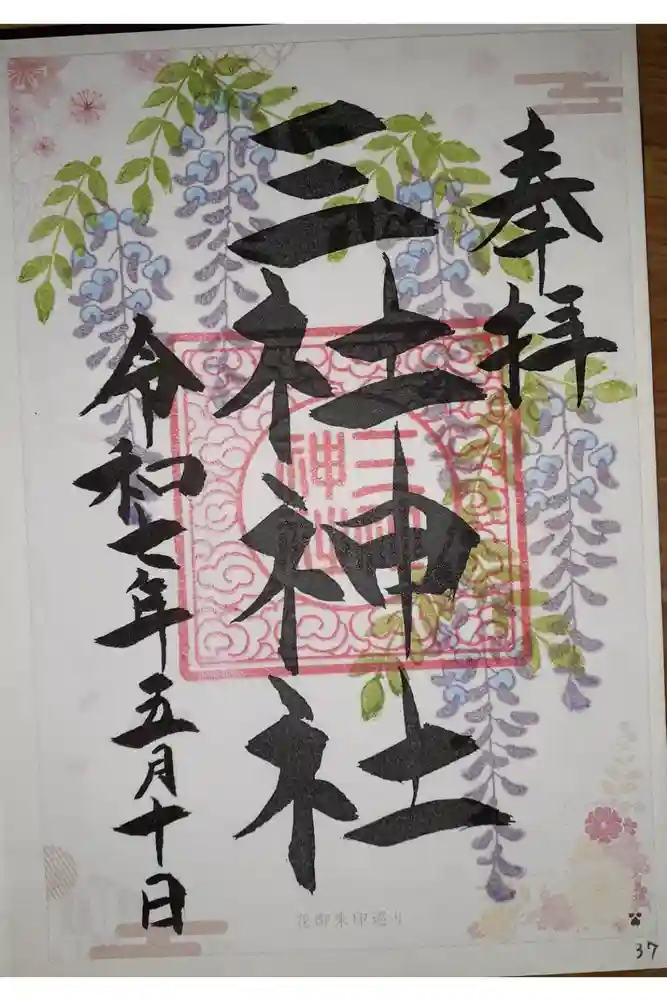 奉拝
三社神社
令和七年五月十日
三社
神社
花御朱印巡り
37